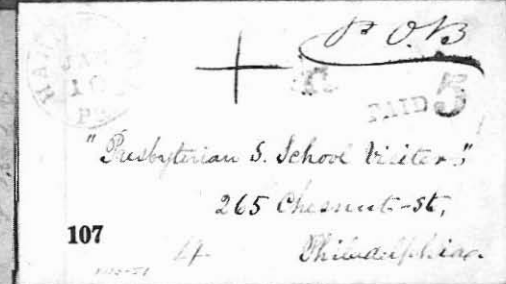 P O B
JAN
10
PAID 5
"Presbyterian S. School Visiter"
265 Chesnut-St,
107
Philadelphia.